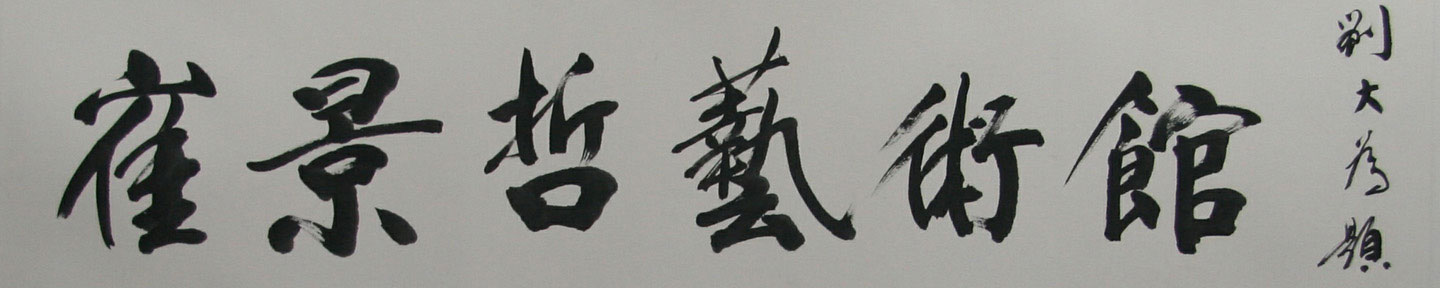 崔景哲藝術館
劉大為題